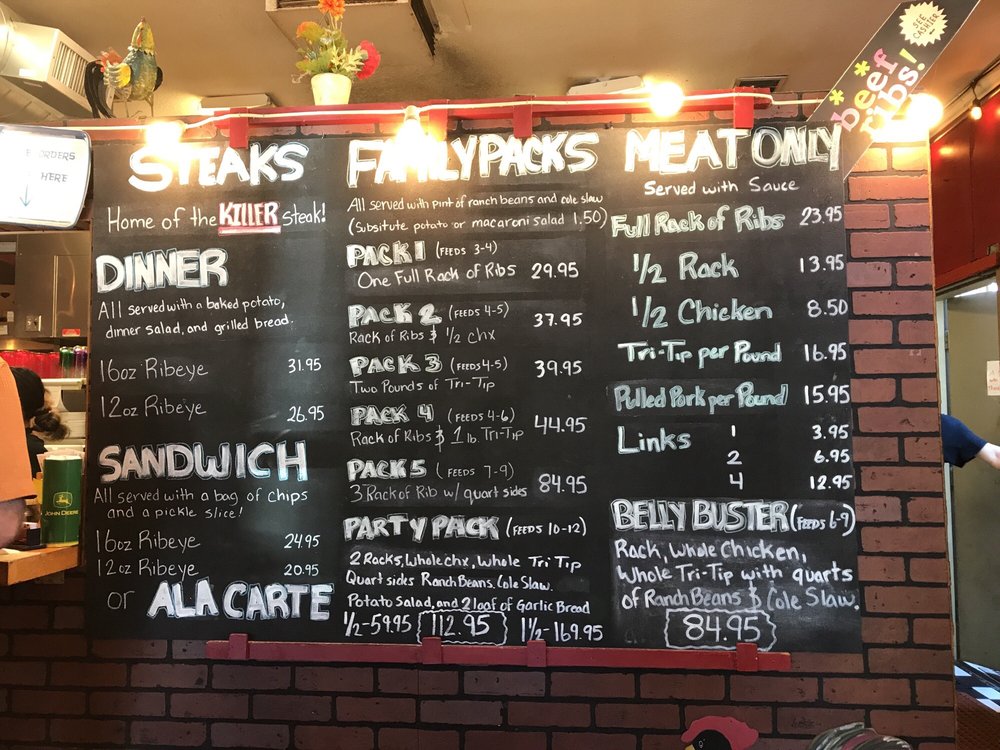 ORDERS
HERE
SEE CASHIER
*beef* ribs!
STEAKS
Home of the KILLER steak!
DINNER
All served with a baked potato,
dinner salad, and grilled bread.
16oz Ribeye 31.95
12oz Ribeye 26.95
SANDWICH
All served with a bag of chips
and a pickle slice!
16oz Ribeye 24.95
12oz Ribeye 20.95
or ALA CARTE
FAMILY PACKS
All served with pint of ranch beans and cole slaw
(Subsitute potato or macaroni salad 1.50)
PACK 1 (FEEDS 3-4)
One Full Rack of Ribs 29.95
PACK 2 (FEEDS 4-5)
Rack of Ribs & 1/2 chx 37.95
PACK 3 (FEEDS 4-5)
Two Pounds of Tri-Tip 39.95
PACK 4 (FEEDS 4-6)
Rack of Ribs & 1 lb. Tri-Tip 44.95
PACK 5 (FEEDS 7-9)
3 Rack of Rib w/ quart sides 84.95
PARTY PACK (FEEDS 10-12)
2 Racks, Whole chx, Whole Tri Tip
Quart sides Ranch Beans, Cole Slaw,
Potato Salad, and 2 loaf of Garlic Bread
1/2-59.95 112.95 1 1/2-169.95
MEAT ONLY
Served with Sauce
Full Rack of Ribs 23.95
1/2 Rack 13.95
1/2 Chicken 8.50
Tri-Tip per Pound 16.95
Pulled Pork per Pound 15.95
Links 1 3.95
2 6.95
4 12.95
BELLY BUSTER (FEEDS 6-9)
Rack, Whole Chicken,
Whole Tri-Tip with quarts
of Ranch Beans & Cole Slaw.
84.95
JOHN DEERE